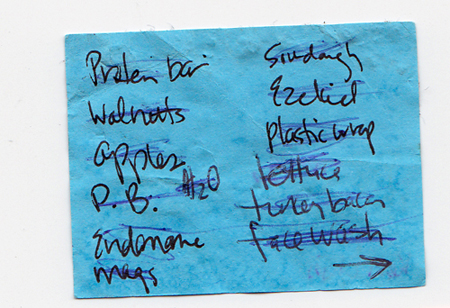 Protein bar
Walnuts
apples
P.B. H2O
Endamame
mags
Sourdough
Ezekiel
plastic wrap
lettuce
turkey bacon
face wash